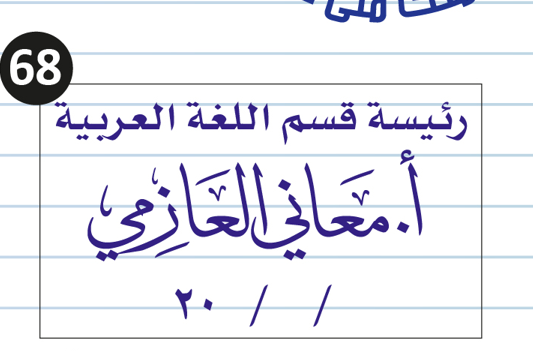 68
رئيسة قسم اللغة العربية
أ. معاني العازمي
/ / ٢٠